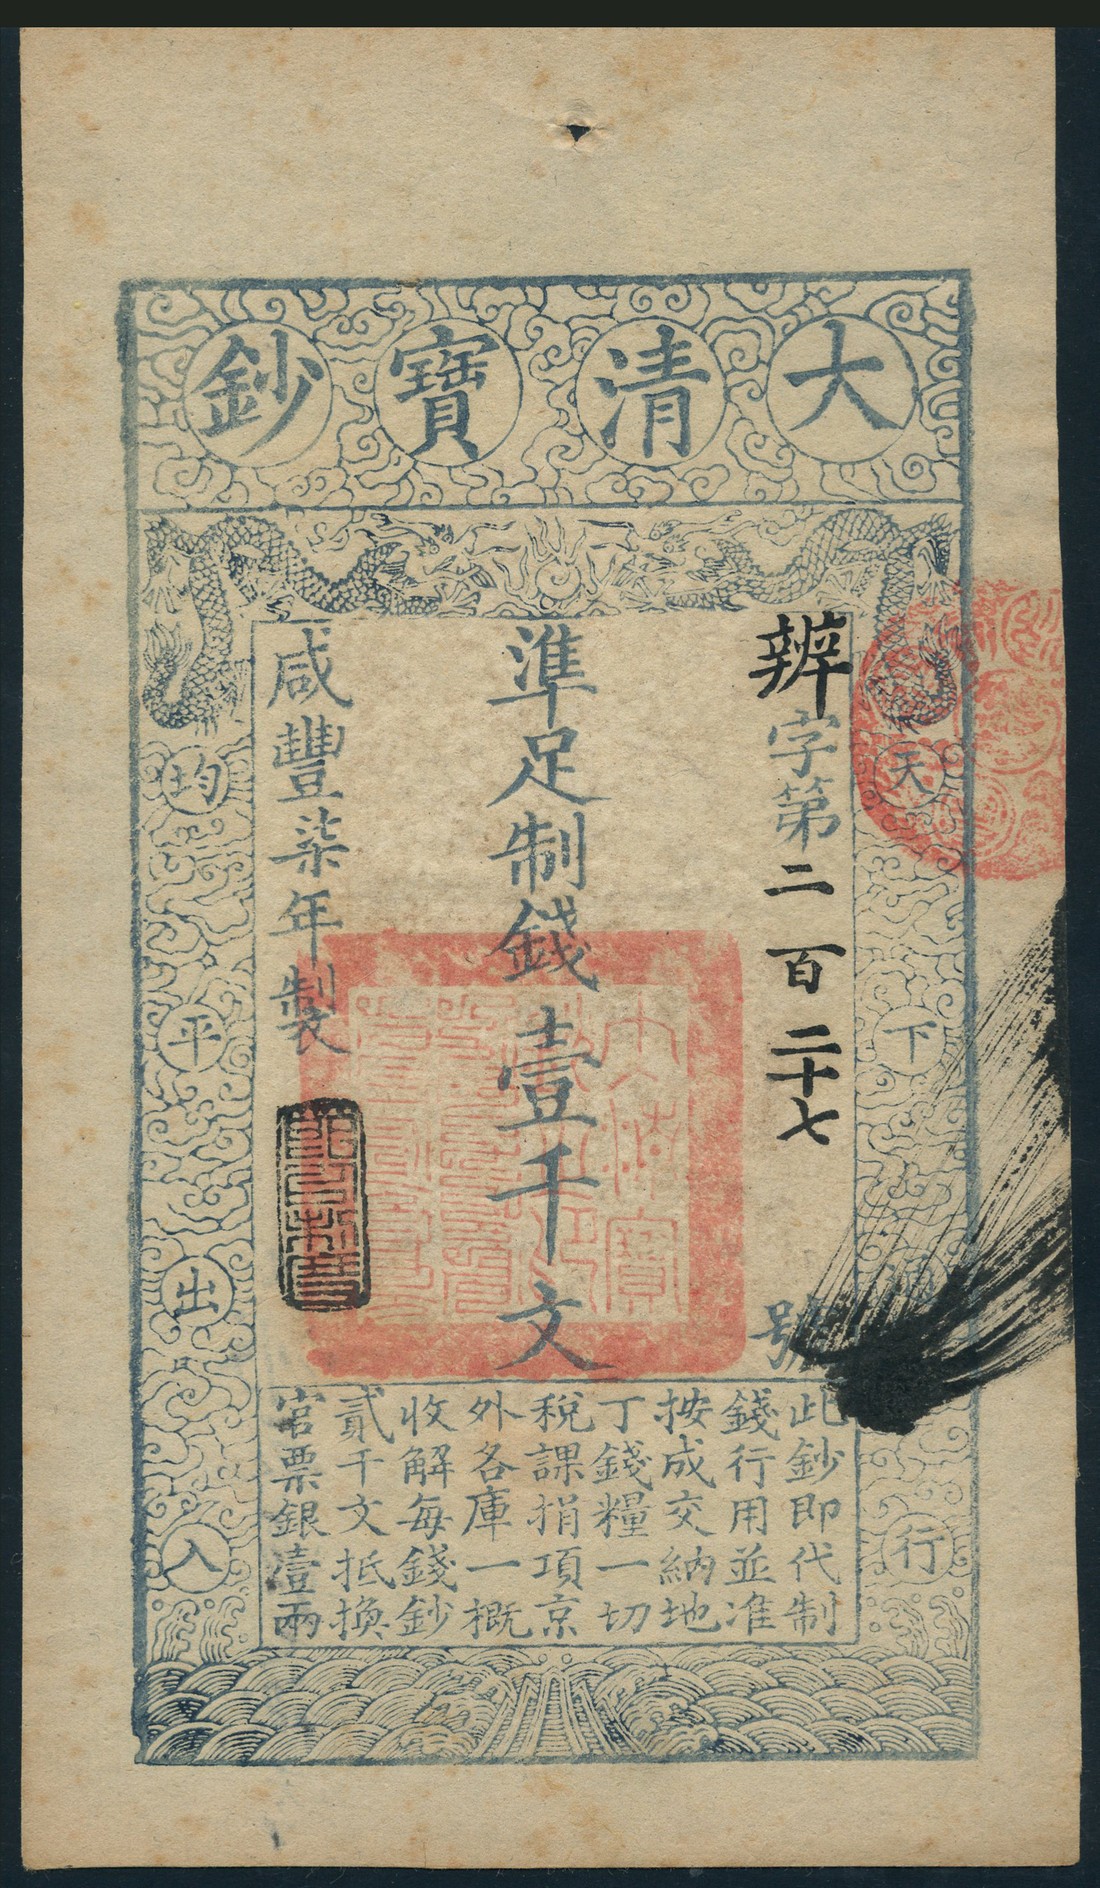 大清寶鈔
天下通行
均平出入
辨字第二百二十七號
準足制錢壹千文
咸豐柒年製
此鈔即代制
錢行用並准
按成交納地
丁錢糧一切
稅課捐項京
外各庫一概
收解每錢鈔
貳千文抵換
官票銀壹兩